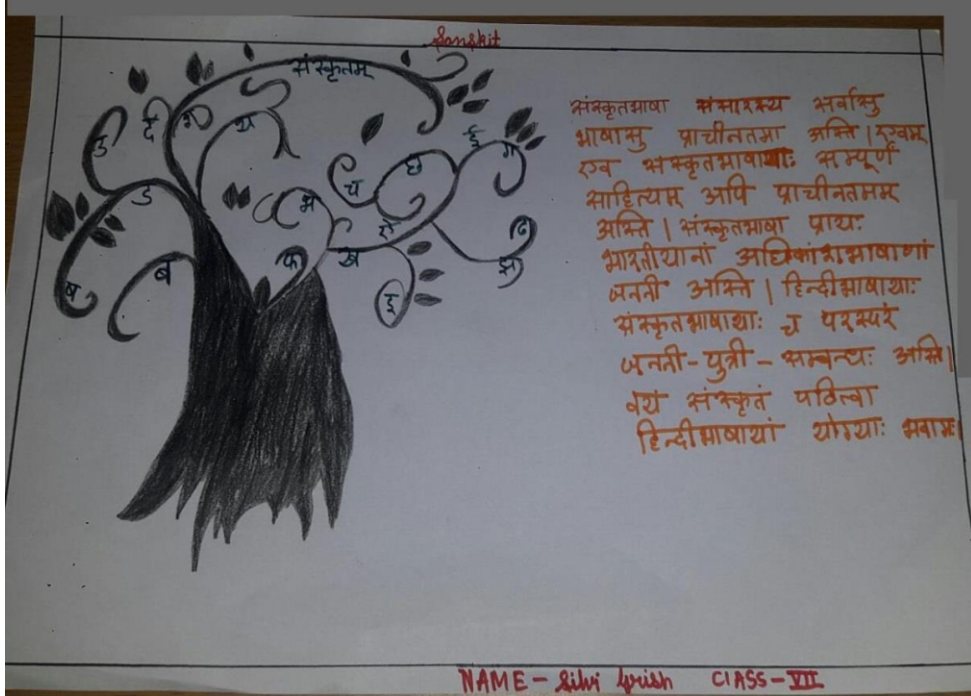 Sanskit
संस्कृतम्
उ दे भ थ
ड
ष ब
भ फ
च छ ई ग
ख
झ
इ
संस्कृतभाषा संसारस्य सर्वासु
भाषासु प्राचीनतमा अस्ति | एवम्
एव संस्कृतभाषायाः सम्पूर्णं
साहित्यम् अपि प्राचीनतमम्
अस्ति | संस्कृतभाषा प्रायः
भारतीयानां अधिकांशभाषाणां
जननी अस्ति | हिन्दीभाषायाः
संस्कृतभाषायाः च परस्परं
जननी-पुत्री-सम्बन्धः अस्ति |
वयं संस्कृतं पठित्वा
हिन्दीभाषायां योग्याः भवामः |
NAME- Silvi CLASS-VII